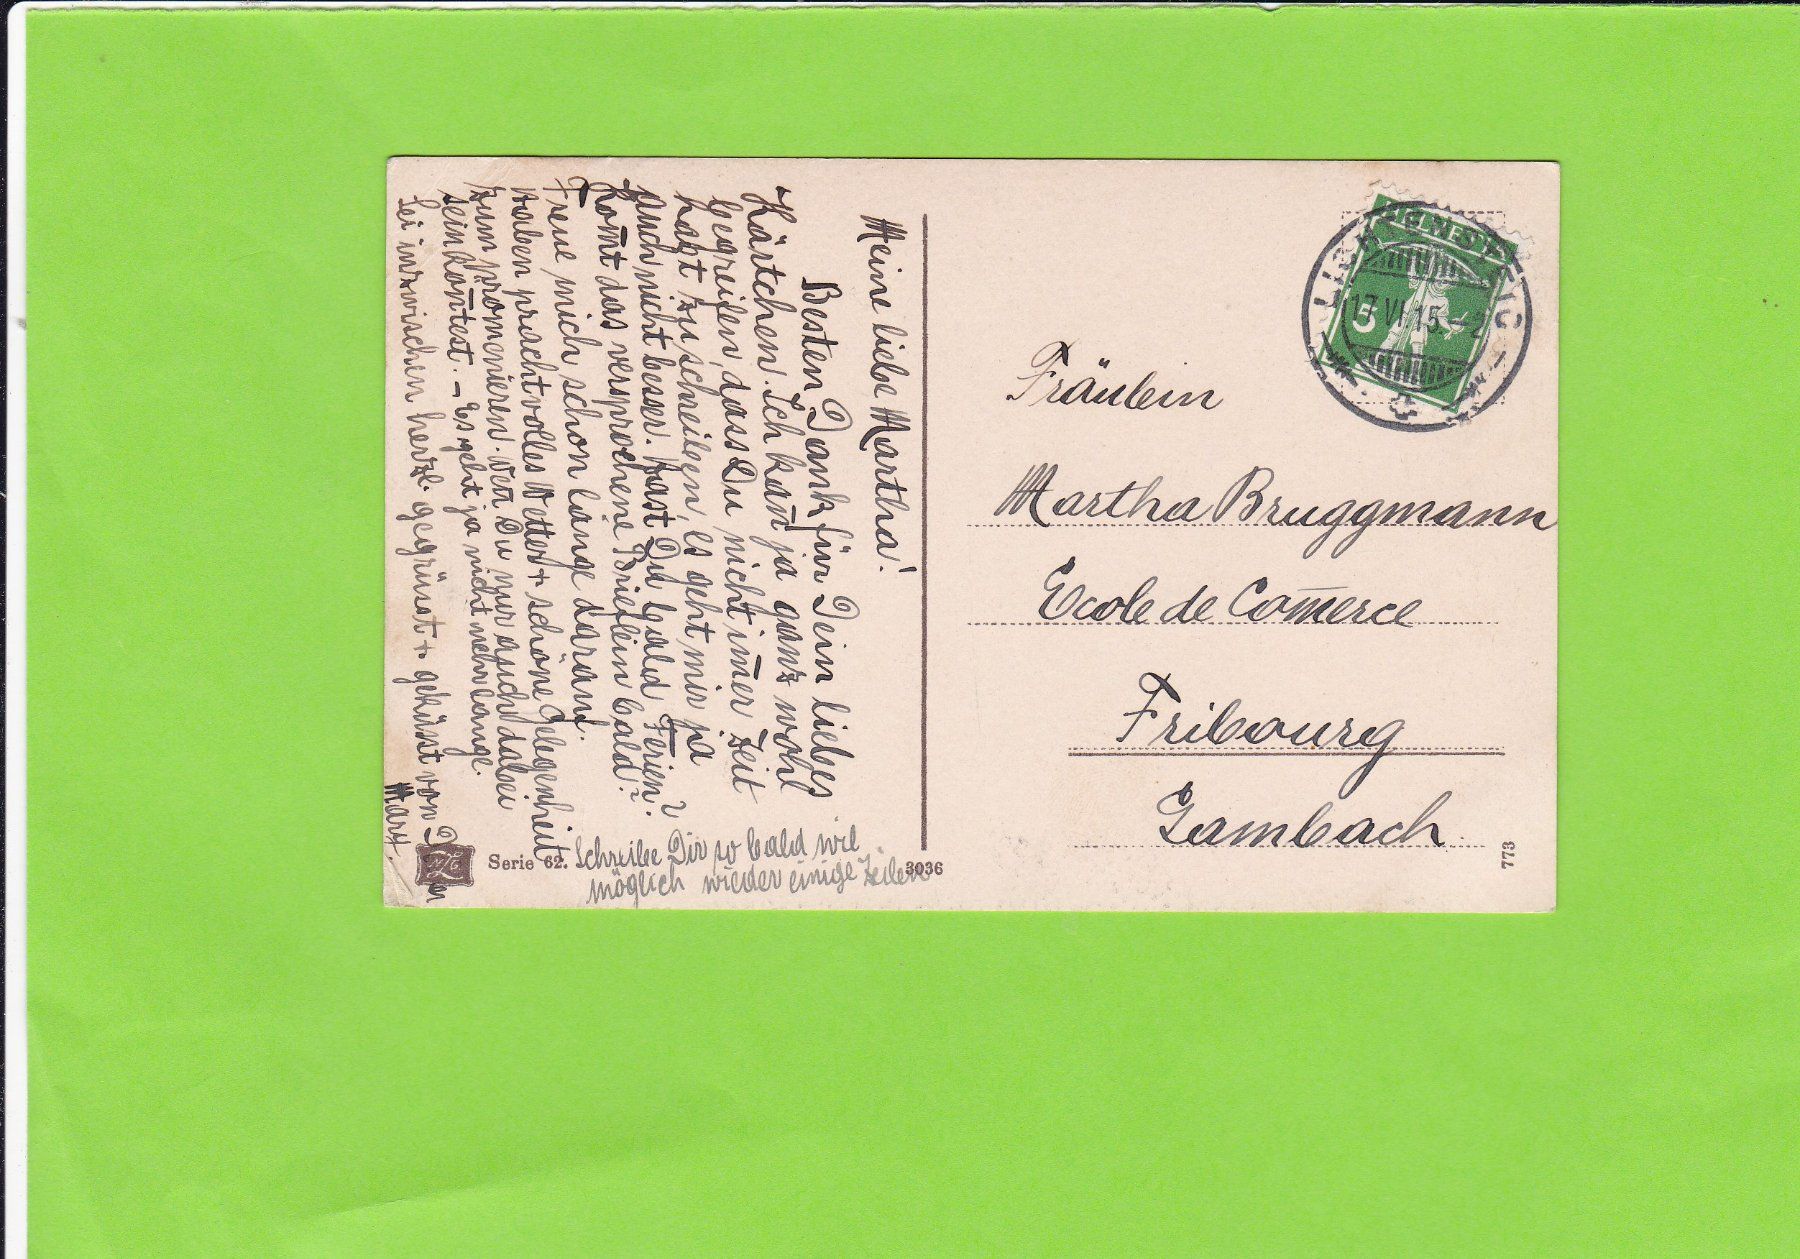 Meine liebe Martha!
Besten Dank für Dein liebes
Kärtchen. Ich kan̄ ja ganz wohl
begreifen, dass Du nicht im̄er Zeit
hast zu schreiben, es geht mir ja
auch nicht besser. Hast Du bald Ferien?
Kom̄t das versprochene Brieflein bald?
Freue mich schon lange darauf.
Haben prachtvolles Wetter + schöne Gelegenheit
zum promenieren. Wen̄ Du nur auch dabei
sein kön̄test. – Es geht ja nicht mehr lange.
Sei inzwischen herzl. gegrüsst + geküsst von Deiner
Mart.
Schreibe Dir so bald wie
möglich wieder einige Zeilen
Serie 62.
3036
HELVETIA
5
17. VI. 15. – 2
Fräulein
Martha Bruggmann
Ecole de Com̄erce
Fribourg
Gambach
773